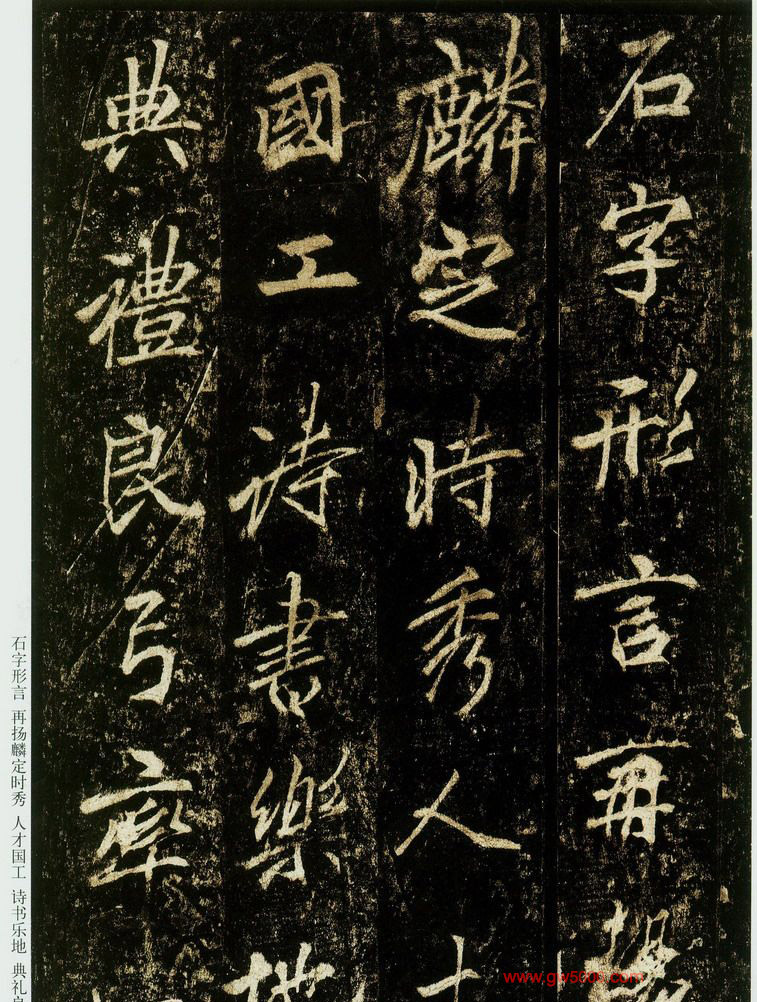 石字形言再揚
麟定時秀人才
國工詩書樂地
典禮良弓率
石字形言 再扬麟定时秀 人才国工 诗书乐地 典礼良
www.gw5000.com